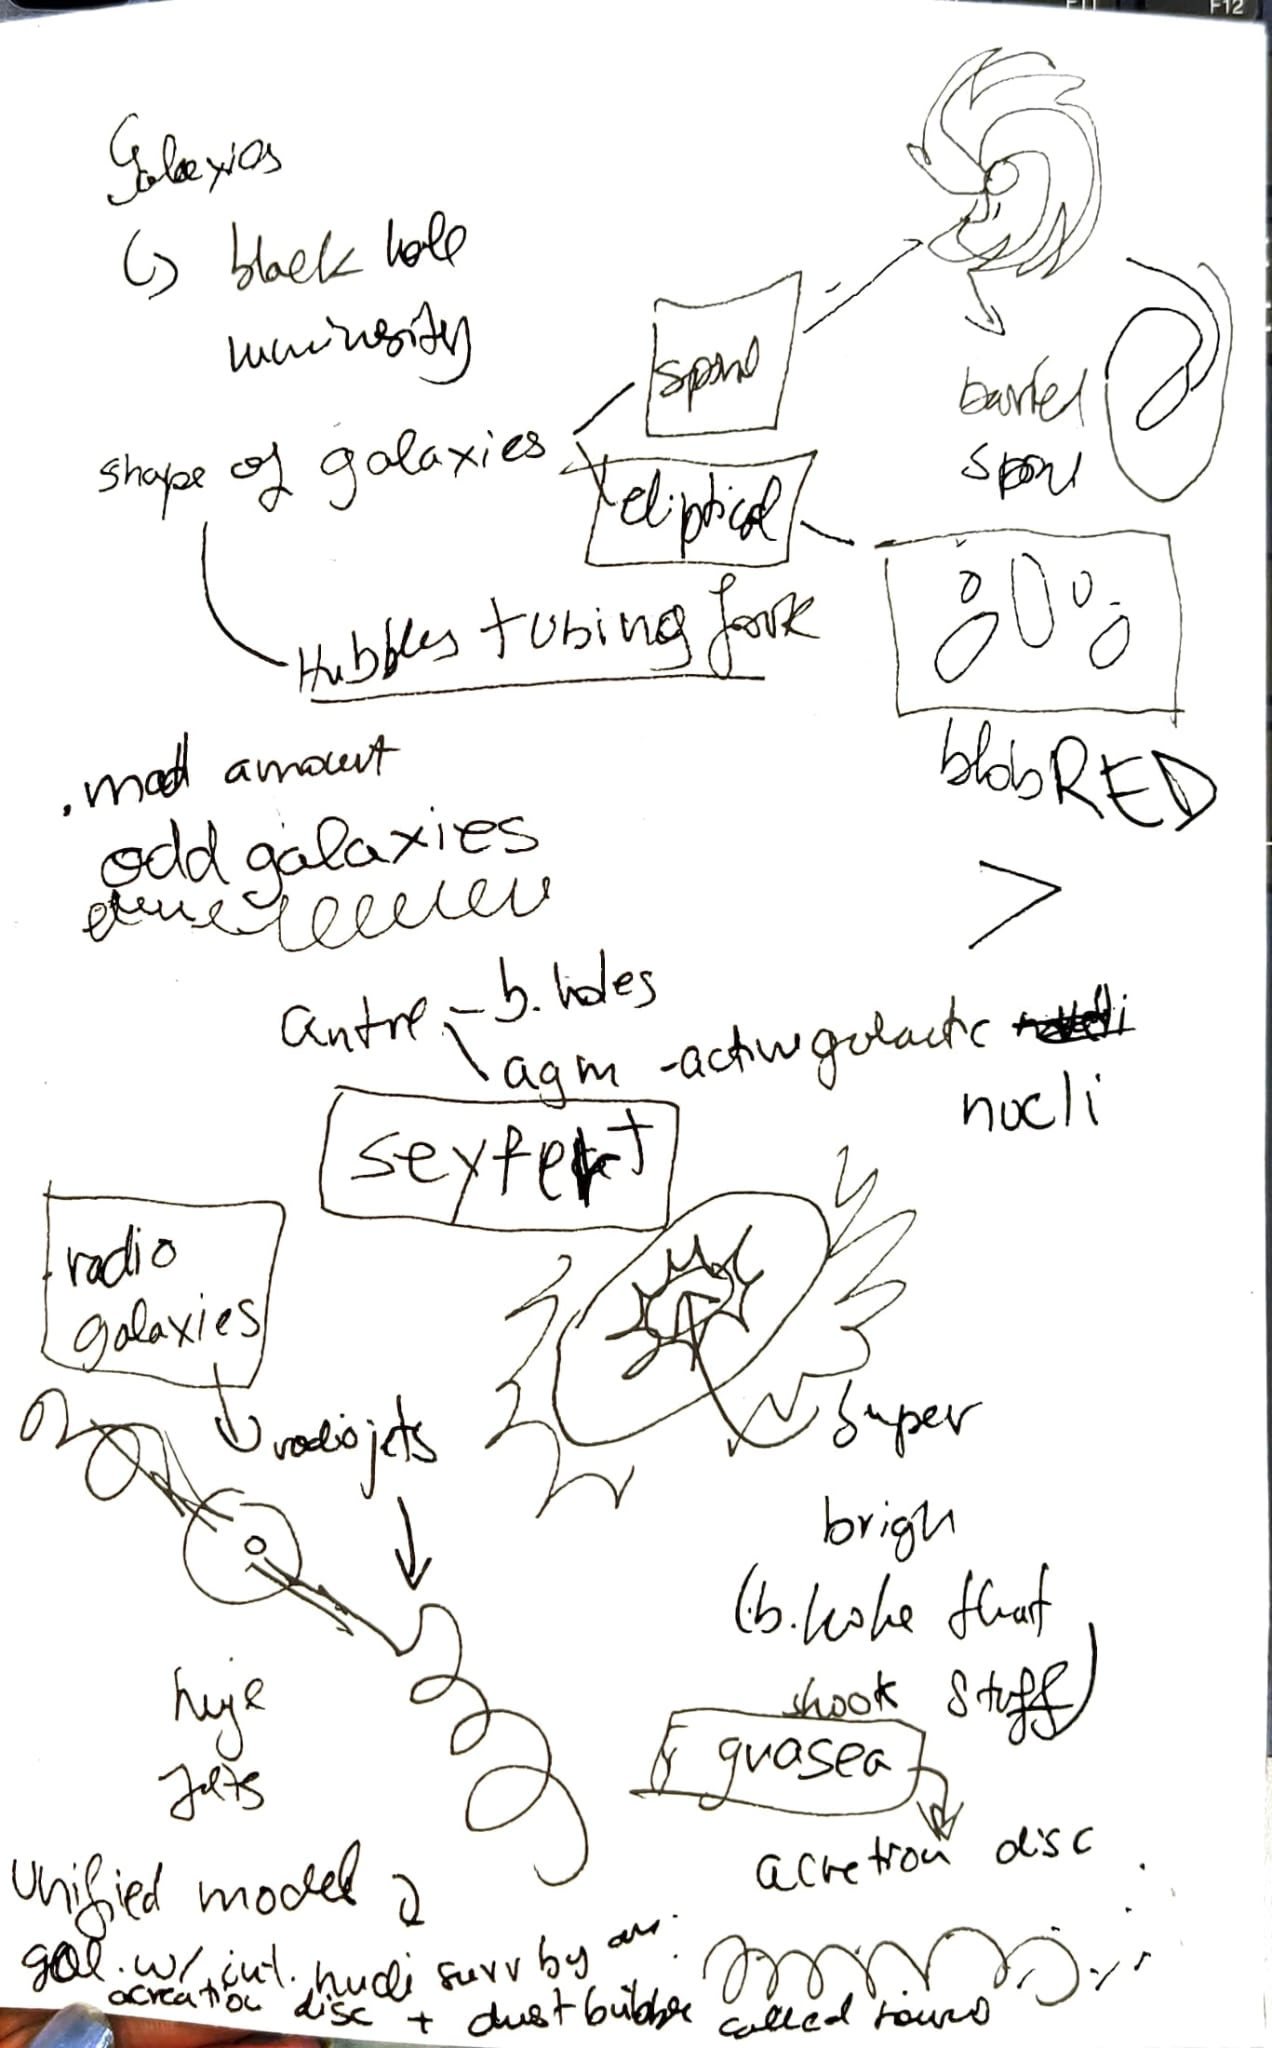 F11 F12
Galaxies
↳ black hole
luminosity
shape of galaxies
spiral
eliptical
barred
spiral
Hubbles tubing fork
blob RED
. mod amount
odd galaxies
>
- b. holes
agm - active galactic
nucli
seyfert
radio
galaxies
radio jets
super
brigh
(b. hohe that
shook stuff
huje
jets
quasea
acretion disc
Unified model
gal. w/ int. nucli surr by an
acreation disc + dust bubble called